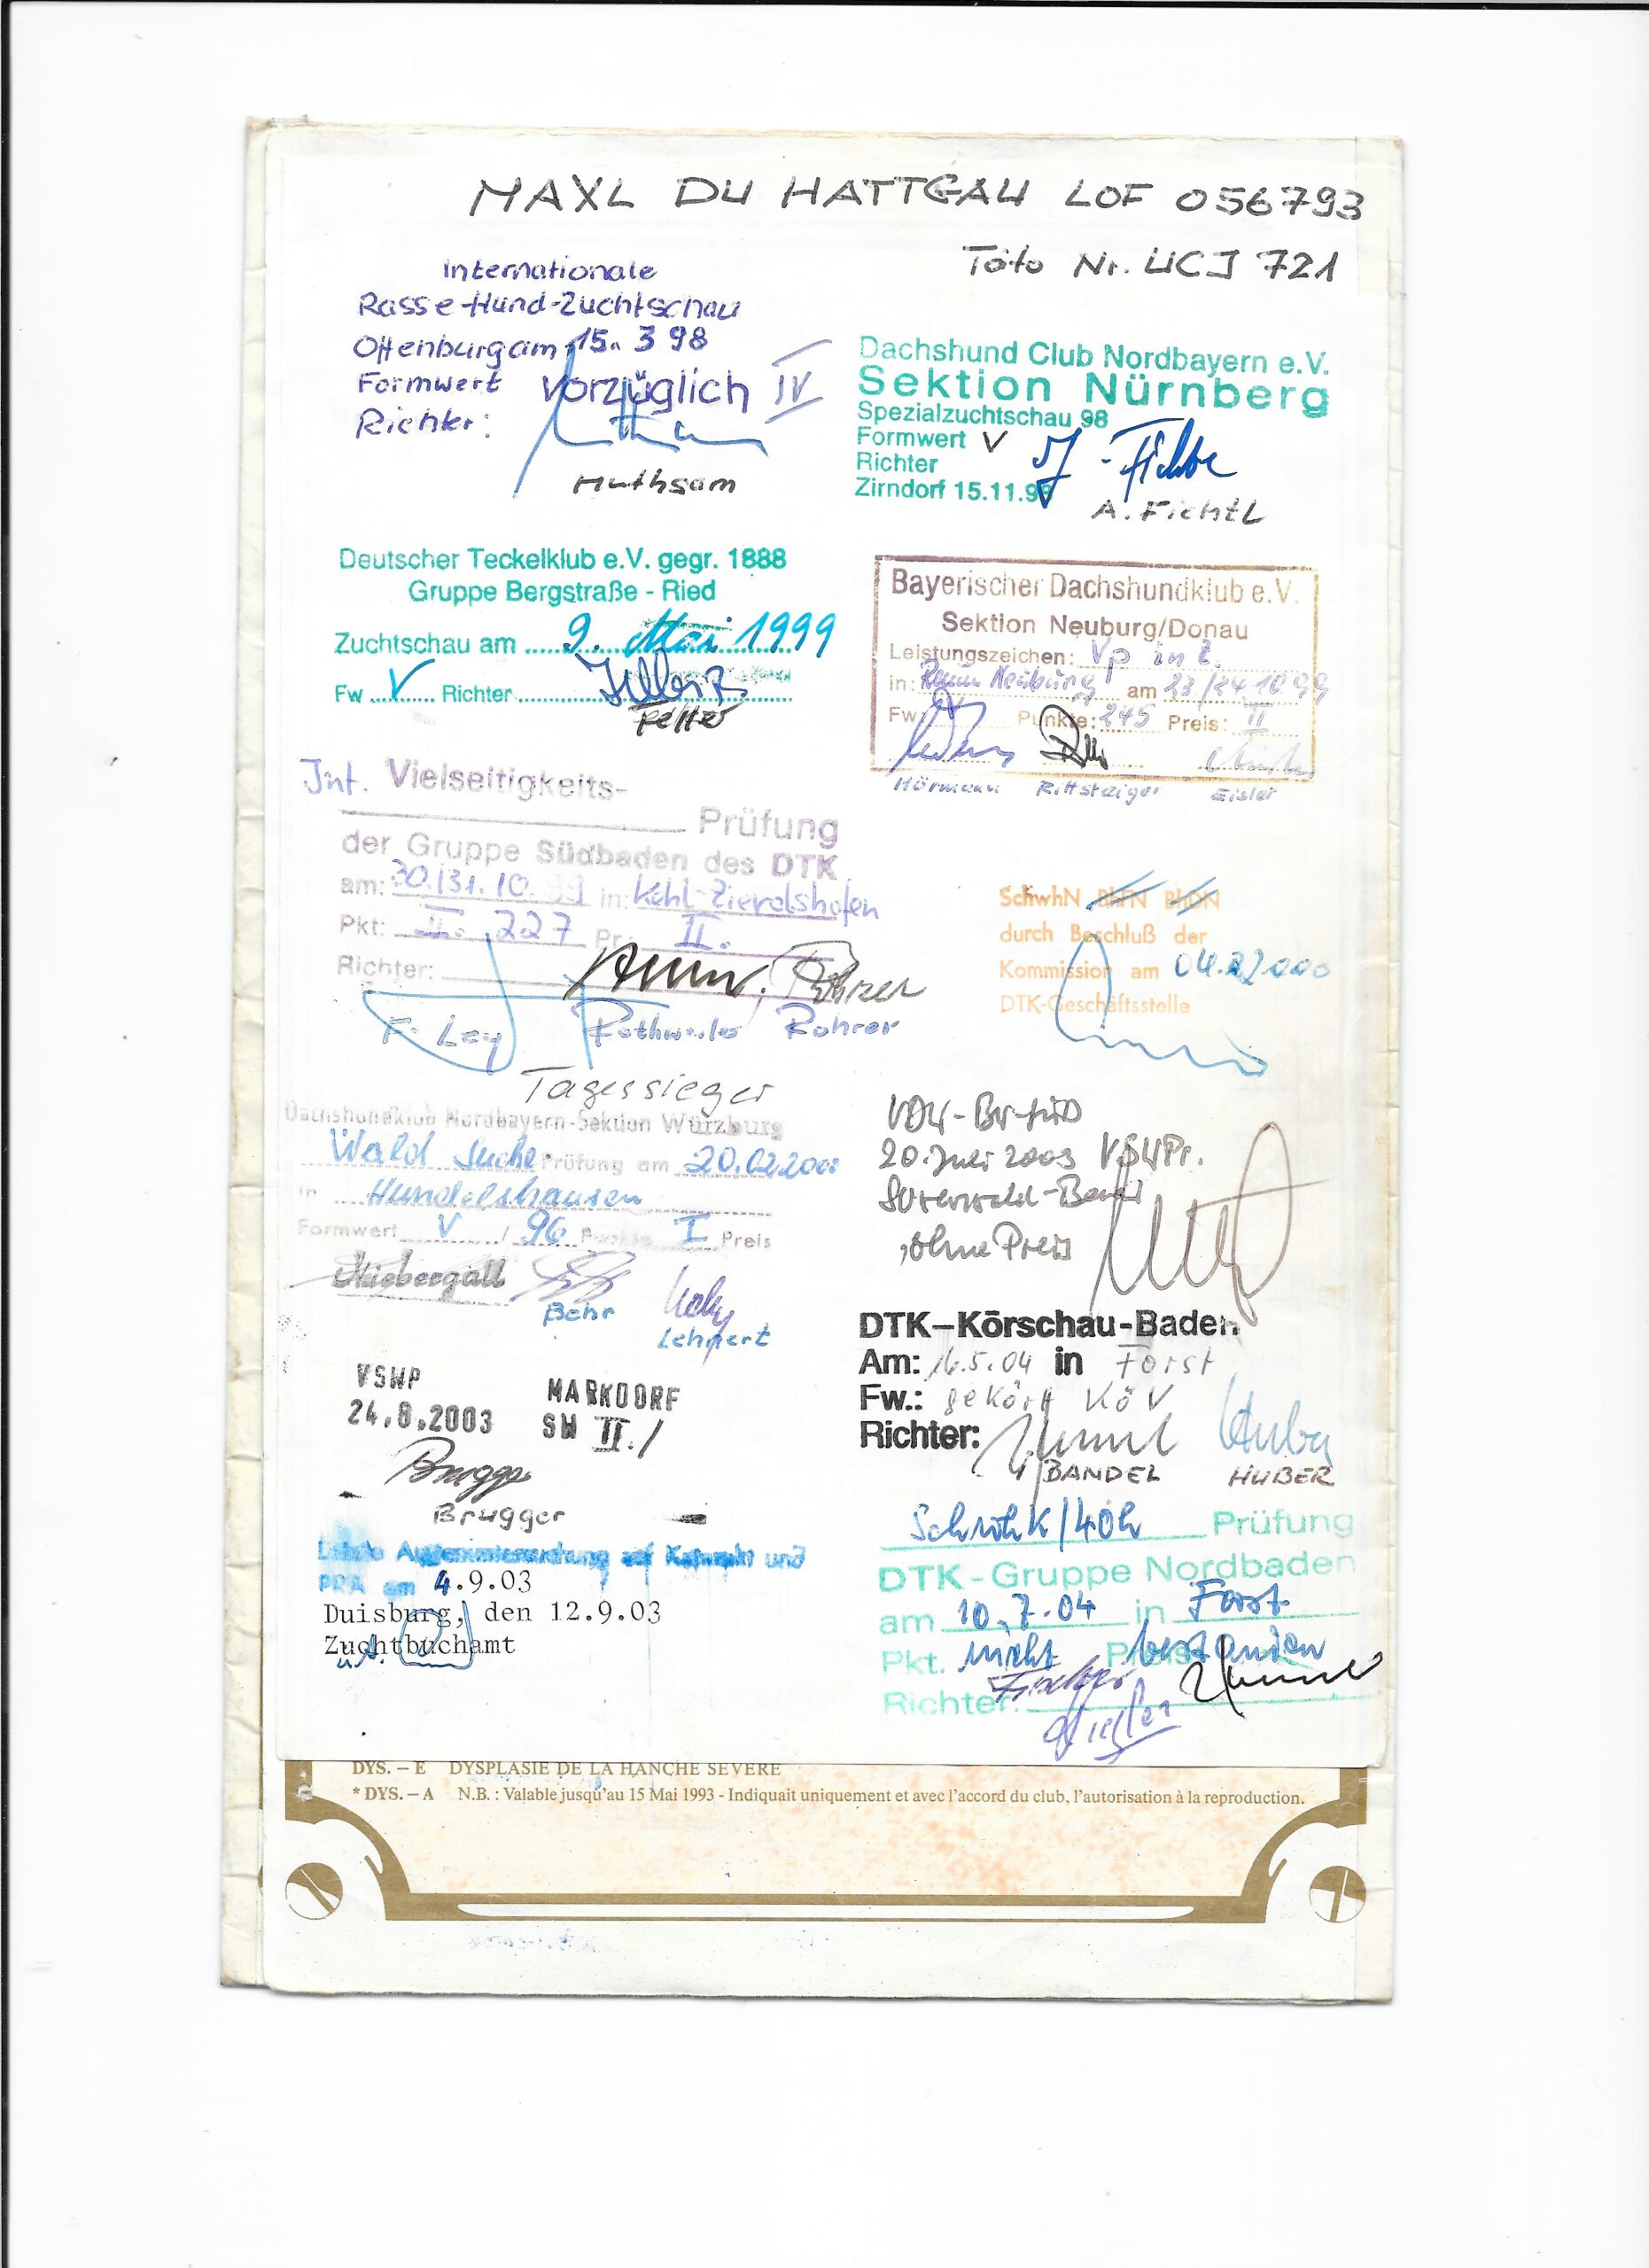 MAXL DU HATTGAU LOF 056793
Töto Nr. UCJ 721
Internationale
Rasse-Hund-Zuchtschau
Offenburg am 15. 3 98
Formwert vorzüglich IV
Richter:
Muthsam
Dachshund Club Nordbayern e.V.
Sektion Nürnberg
Spezialzuchtschau 98
Formwert V
Richter
Zirndorf 15.11.98
A. Fichtl
Deutscher Teckelklub e.V. gegr. 1888
Gruppe Bergstraße - Ried
Zuchtschau am 9. Mai 1999
Fw V Richter
Bayerischer Dachshundklub e.V.
Sektion Neuburg/Donau
Leistungszeichen: Vp
in: Neuburg am 23./24.10.99
Fw. Punkte: 245 Preis: II
Hörmann Rittsteiger Eisler
Int. Vielseitigkeits-
Prüfung
der Gruppe Südbaden des DTK
am: 30./31.10.99 in: Kehl-Zierolshofen
Pkt: 227 Pr. II.
Richter:
F. Ley Rothweiler Rohrer
SchwhN BhFN BhDN
durch Beschluß der
Kommission am
DTK-Geschäftsstelle
Tagessieger
Dachshundklub Nordbayern-Sektion Würzburg
Wald Suche Prüfung am 20.02.2000
in Hundelshausen
Formwert V / 96 Punkte I Preis
Niebergall
Behr
Lehnert
20. Juli 2003 VSWPr.
ohne Preis
VSWP MARKDORF
24.8.2003 SW II./
Brugger
DTK-Körschau-Baden
Am: 16.5.04 in Forst
Fw.: gekört KöV
Richter:
BANDEL HUBER
Letzte Augenuntersuchung auf Katarakt und
PRA am 4.9.03
Duisburg, den 12.9.03
Zuchtbuchamt
i.A.
SchwhK/40h Prüfung
DTK-Gruppe Nordbaden
am 10.7.04 in Forst
Pkt. nicht Preis bestanden
Richter:
DYS. – E DYSPLASIE DE LA HANCHE SEVERE
* DYS. – A N.B. : Valable jusqu'au 15 Mai 1993 - Indiquait uniquement et avec l'accord du club, l'autorisation à la reproduction.